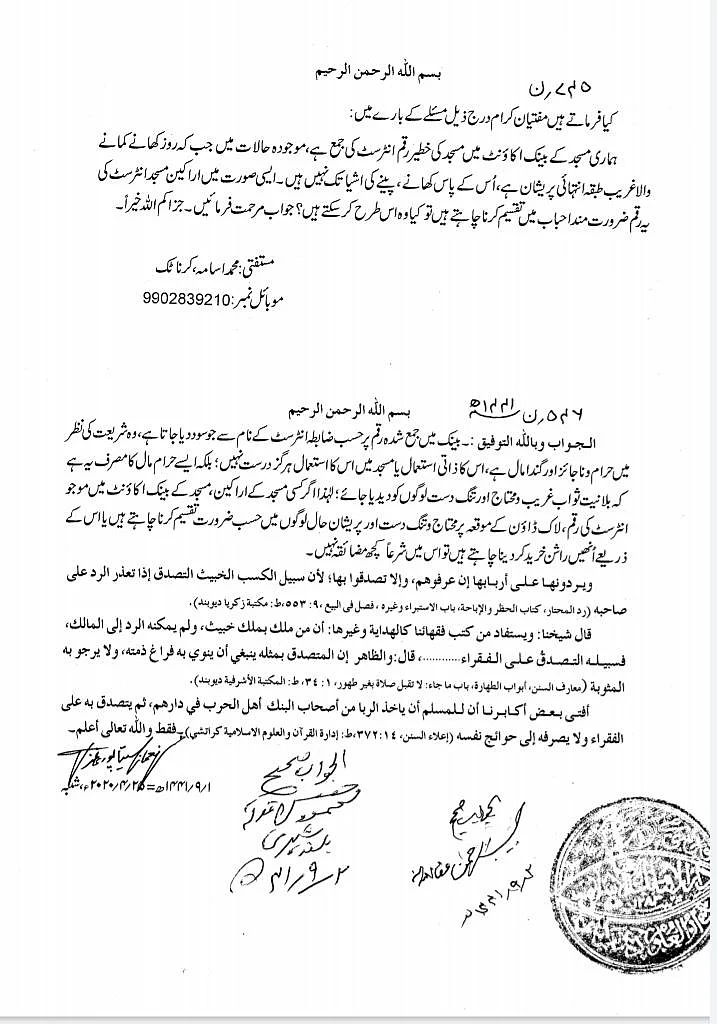 بسم اللہ الرحمن الرحیم
۷۳۵؍ن
کیا فرماتے ہیں مفتیان کرام درج ذیل مسئلے کے بارے میں:
ہماری مسجد کے بینک اکاؤنٹ میں مسجد کی خطیر رقم انٹرسٹ کی جمع ہے، موجودہ حالات میں جب کہ روز کھانے کمانے
والا غریب طبقہ انتہائی پریشان ہے، اُس کے پاس کھانے، پینے کی اشیا تک نہیں ہیں۔ ایسی صورت میں اراکین مسجد انٹرسٹ کی
یہ رقم ضرورت مند احباب میں تقسیم کرنا چاہتے ہیں تو کیا وہ اس طرح کر سکتے ہیں؟ جواب مرحمت فرمائیں۔ جزاکم اللہ خیراً۔
مستفتی: محمد اسامہ، کرناٹک
موبائل نمبر: 9902839210
بسم اللہ الرحمن الرحیم
۵۴۶؍ن ۱۴۴۱ھ
الجواب وباللہ التوفیق :۔ بینک میں جمع شدہ رقم پر حسب ضابطہ انٹرسٹ کے نام سے جو سود دیا جاتا ہے، وہ شریعت کی نظر
میں حرام وناجائز اور گندا مال ہے، اس کا ذاتی استعمال یا مسجد میں اس کا استعمال ہرگز درست نہیں؛ بلکہ ایسے حرام مال کا مصرف یہ ہے
کہ بلا نیت ثواب غریب ومحتاج اور تنگ دست لوگوں کو دیدیا جائے؛ لہٰذا اگر کسی مسجد کے اراکین، مسجد کے بینک اکاؤنٹ میں موجو
انٹرسٹ کی رقم، لاک ڈاؤن کے موقعہ پر محتاج وتنگ دست اور پریشان حال لوگوں میں حسب ضرورت تقسیم کرنا چاہتے ہیں یا اس کے
ذریعے اُنھیں راشن خرید کر دینا چاہتے ہیں تو اس میں شرعاً کچھ مضائقہ نہیں۔
ویردونها علی أربابها إن عرفوهم، وإلا تصدقوا بها؛ لأن سبیل الکسب الخبیث التصدق إذا تعذر الرد علی
صاحبه (رد المحتار، کتاب الحظر والإباحة، باب الاستبراء وغیره، فصل في البیع، ۹: ۵۵۳، ط: مکتبة زکریا دیوبند).
قال شیخنا: ویستفاد من کتب فقهائنا کالهدایة وغیرها: أن من ملك بملك خبیث، ولم یمکنه الرد إلی المالك،
فسبیله التصدق علی الفقراء............، قال: والظاهر إن المتصدق بمثله ینبغي أن ینوي به فراغ ذمته، ولا یرجو به
المثوبة (معارف السنن، أبواب الطهارة، باب ما جاء: لا تقبل صلاة بغیر طهور، ۱: ۳۴، ط: المکتبة الأشرفیة دیوبند).
أفتی بعض أکابرنا أن للمسلم أن یاخذ الربا من أصحاب البنك أهل الحرب في دارهم، ثم یتصدق به علی
الفقراء ولا یصرفه إلی حوائج نفسه (إعلاء السنن، ۱۴: ۳۷۲، ط: إدارة القرآن والعلوم الاسلامیة کراتشي)۔ فقط واللہ تعالی أعلم۔
۱؍۹؍۱۴۴۱ھ=۲۵؍۴؍۲۰۲۰ء، شنبہ
الجواب صحیح
محمود
بلند شہری
۲؍۹؍۴۱ھ
الجواب صحیح
۲؍۹؍۱۴۴۱ھ